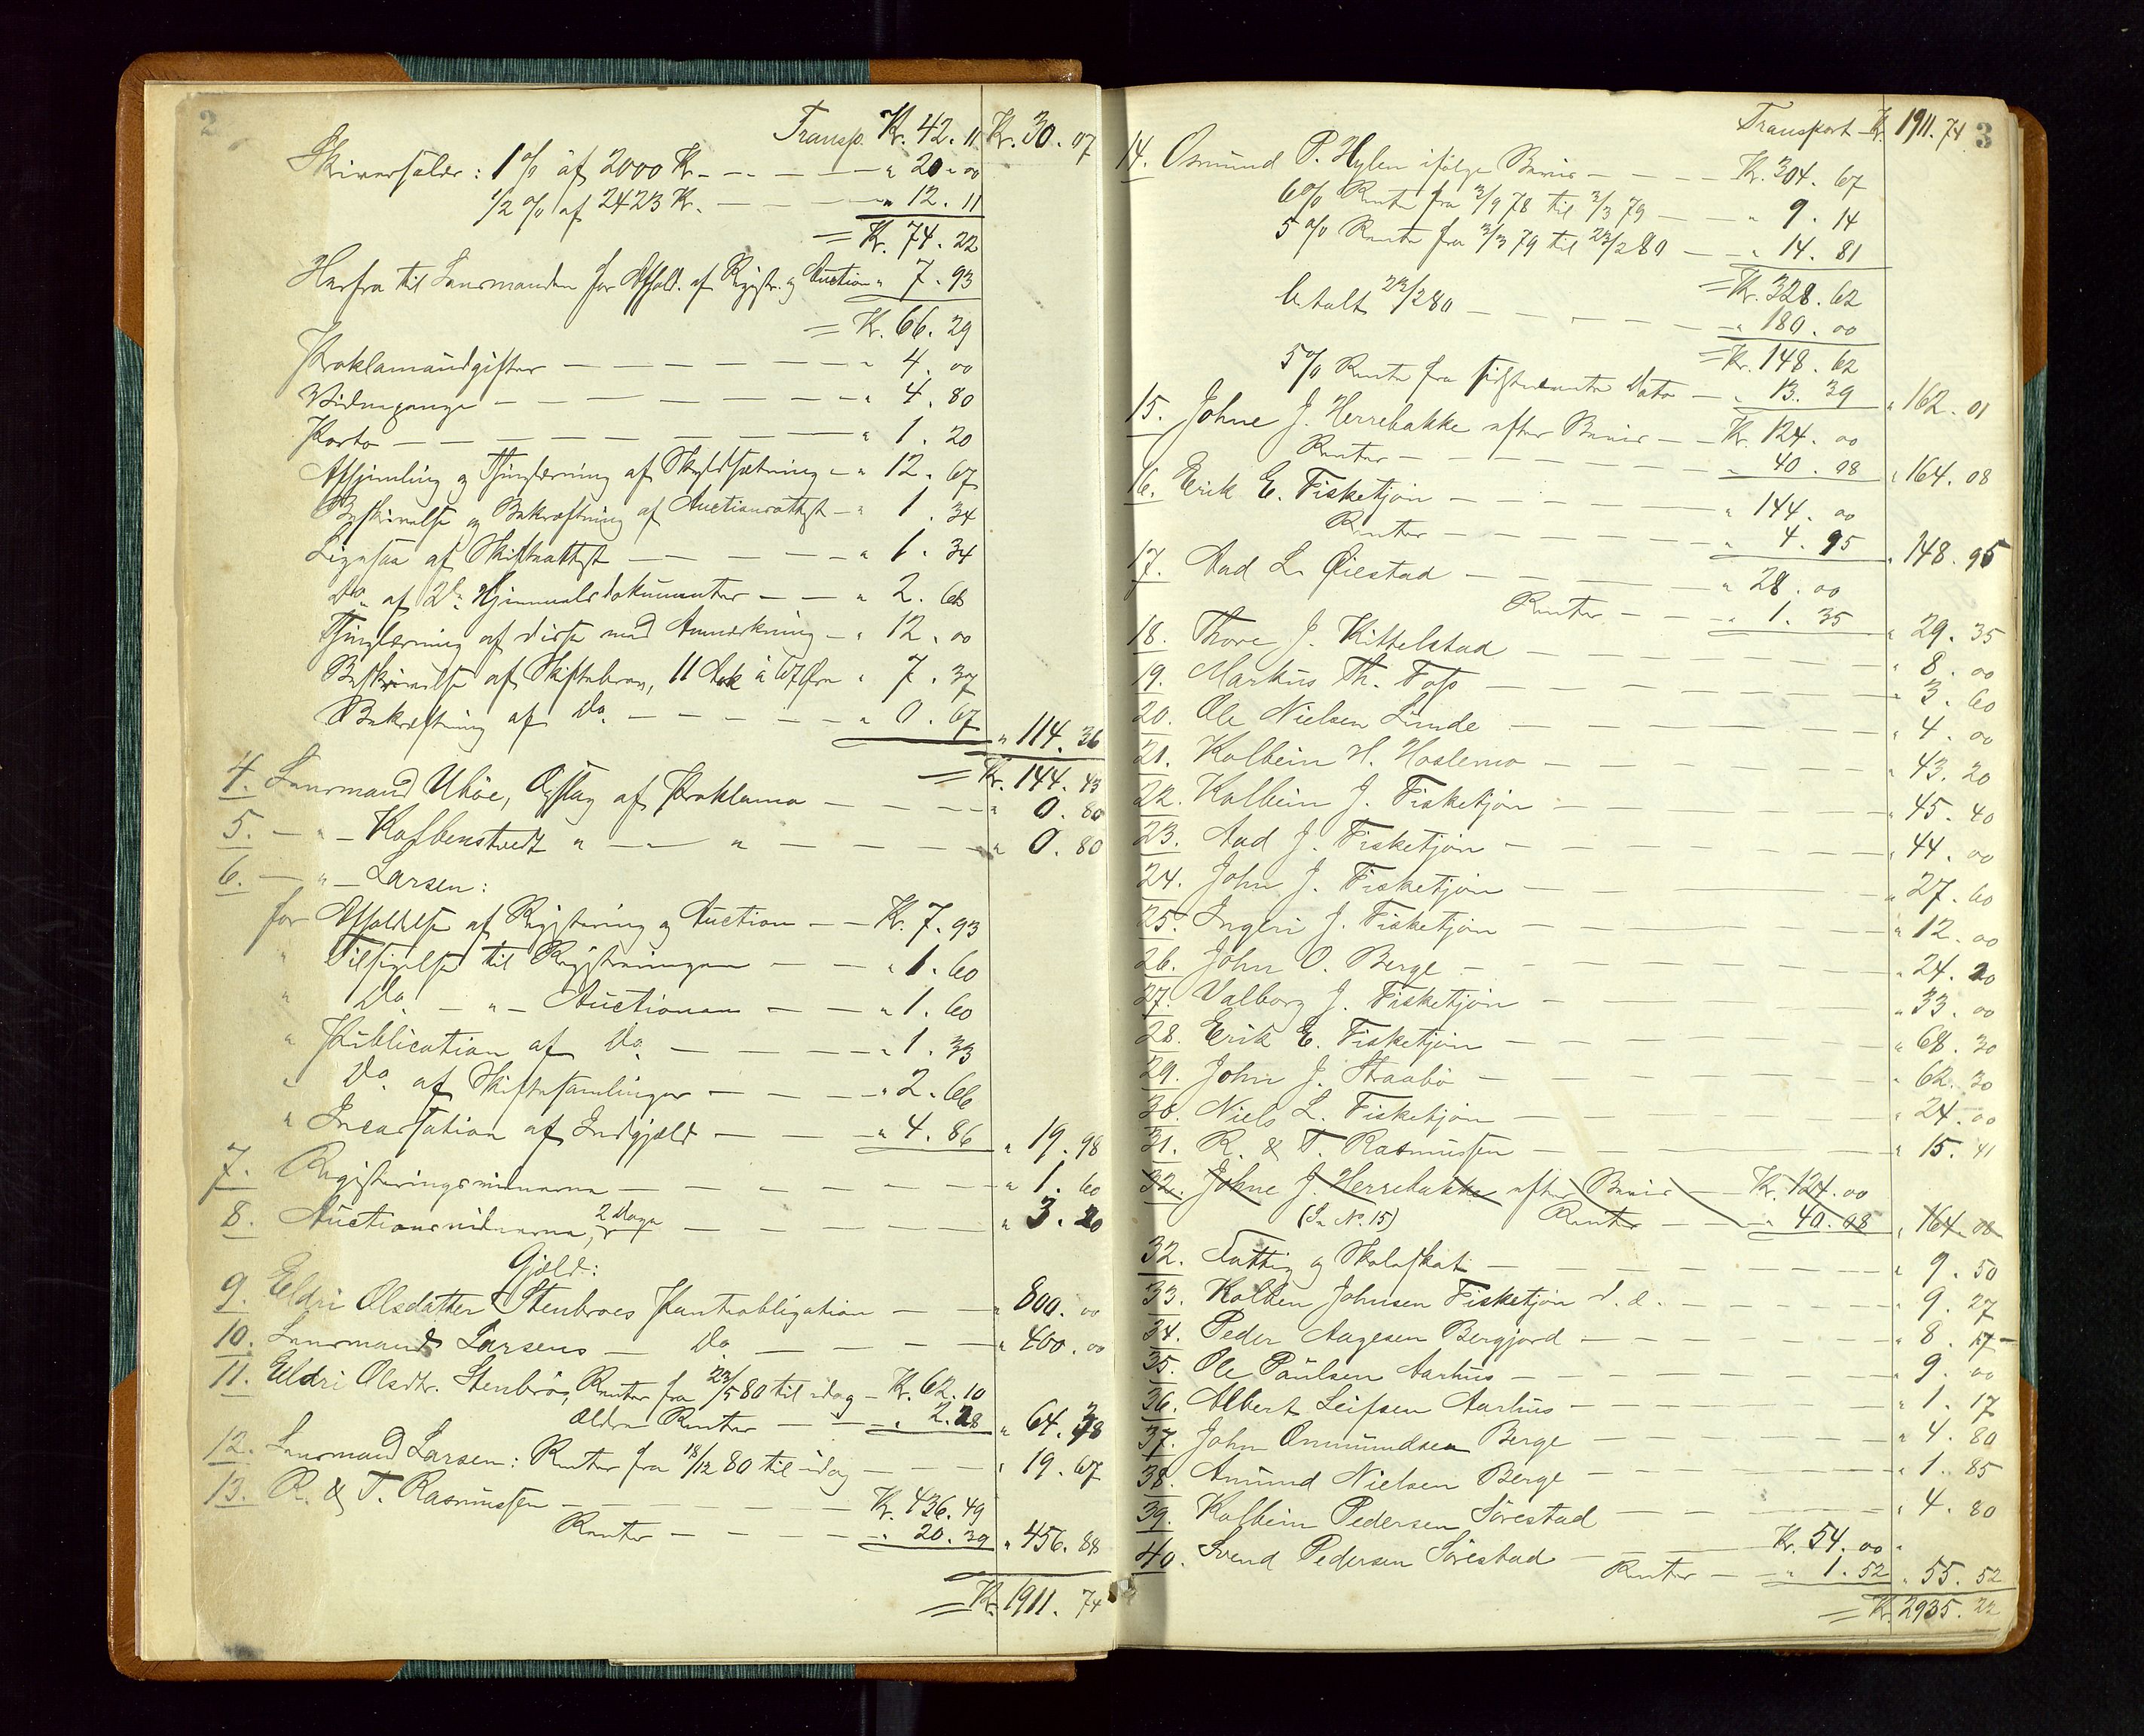 2
Transp. Kr. 42. 11 Kr. 30. 07
Skiversalær: 1 % af 2000 Kr. - - - - " 20. 00
1/2 % af 2423 Kr. - - - " 12. 11
= Kr. 74. 22
Herfra til Lensmanden for Afhold. af Registr. og Auction " 7. 93
= Kr. 66. 29
Proklamaudgifter - - - - - " 4. 00
Vidnepenge - - - - - " 4. 80
Porto - - - - - " 1. 20
Afhjemling og Thinglæsning af Skyldsætning - " 12. 67
Beskrivelse og Bekræftning af Auctionsattest - " 1. 34
Ligesaa af Skifteattest - - - - " 1. 34
Do. af 2de Hjemmelsdokumenter - - " 2. 68
Thinglæsning af disse med Anmerkning - " 12. 00
Beskrivelse af Skiftebrev, 11 Ark à 67 Øre " 7. 37
Bekræftning af Do. - - - - " 0. 67 " 114. 36
= Kr. 144. 43
4. Lensmand Uhøe, Opslag af Proklama - - - " 0. 80
5. - " - Kolbenstvedt " - " - - - " 0. 80
6. - " - Larsen:
for Afholdelse af Registering og Auction - - Kr. 7. 93
" Tilsigelse til Registeringen - - - " 1. 60
" Do. - " - Auctionen - - - " 1. 60
" Publication af Do. - - - - " 1. 33
" Do. af Skiftesamlinger - - - " 2. 66
" Incassation af Indgjæld - - - " 4. 86 " 19. 98
7. Registeringsvidnerne - - - - - " 1. 60
8. Auctionsvidnerne, 2 Dage - - - - " 3. 20
Gjæld:
9. Eldri Olsdatter Stenbroes Panteobligation - - " 800. 00
10. Lensmand Larsens - Do. - - - " 400. 00
11. Eldri Olsdtr. Stenbrö, Renter fra 23/5 80 til idag - Kr. 62. 10
ældre Renter - - " 2. 28 " 64. 38
12. Lensmand Larsen: Renter fra 18/12 80 til idag - - " 19. 67
13. R. & T. Rasmussen - - - - Kr. 436. 49
Renter - - - - " 20. 39 " 456. 88
= Kr. 1911. 74
3
Transport Kr. 1911. 74
14. Osmund P. Hylen ifølge Bevis - - - - Kr. 304. 67
6 % Rente fra 3/9 78 til 3/3 79 - - " 9. 14
5 % Rente fra 3/3 79 til 23/2 80 - - " 14. 81
= Kr. 328. 62
betalt 23/2 80 - - - - " 180. 00
= Kr. 148. 62
5 % Rente fra sidstnævnte Dato - " 13. 39 " 162. 01
15. Johne J. Herrebakke efter Bevis - - Kr. 124. 00
Renter - - - - " 40. 08 " 164. 08
16. Erik E. Fisketjøn - - - - " 144. 00
Renter - - - - " 4. 95 " 148. 95
17. Aad L. Öiestad - - - - " 28. 00
Renter - - " 1. 35 " 29. 35
18. Thore J. Kittelstad - - - - " 8. 00
19. Markus Th. Foss - - - - " 3. 60
20. Ole Nielsen Linde - - - - " 4. 00
21. Kolbein H. Hoslemo - - - - " 43. 20
22. Kolbein J. Fisketjøn - - - - " 45. 40
23. Aad J. Fisketjøn - - - - " 44. 00
24. John J. Fisketjøn - - - - " 27. 60
25. Ingeri J. Fisketjøn - - - - " 12. 00
26. John O. Berge - - - - " 24. 20
27. Valborg J. Fisketjøn - - - - " 33. 00
28. Erik E. Fisketjøn - - - - " 68. 30
29. John J. Straabö - - - - " 62. 30
30. Niels L. Fisketjøn - - - - " 24. 00
31. R. & T. Rasmussen - - - - " 15. 41
32. Johne J. Herrebakke efter Bevis - Kr. 124. 00
(Se No. 15) Renter - - " 40. 08 " 164. 08
32. Fattig og Skoleskat - - - - " 9. 50
33. Kolben Johnsen Fisketjøn d. æ. - - - " 9. 27
34. Peder Aagesen Bergjord - - - - " 8. 17
35. Ole Paulsen Aarhus - - - - " 9. 00
36. Albert Leifsen Aarhus - - - - " 1. 17
37. John Ommundsen Berge - - - - " 4. 80
38. Amund Nielsen Berge - - - - " 1. 85
39. Kolbein Pedersen Sörestad - - - - " 4. 80
40. Svend Pedersen Sörestad - - - Kr. 54. 00
Renter - - " 1. 52 " 55. 52
= Kr. 2935. 22